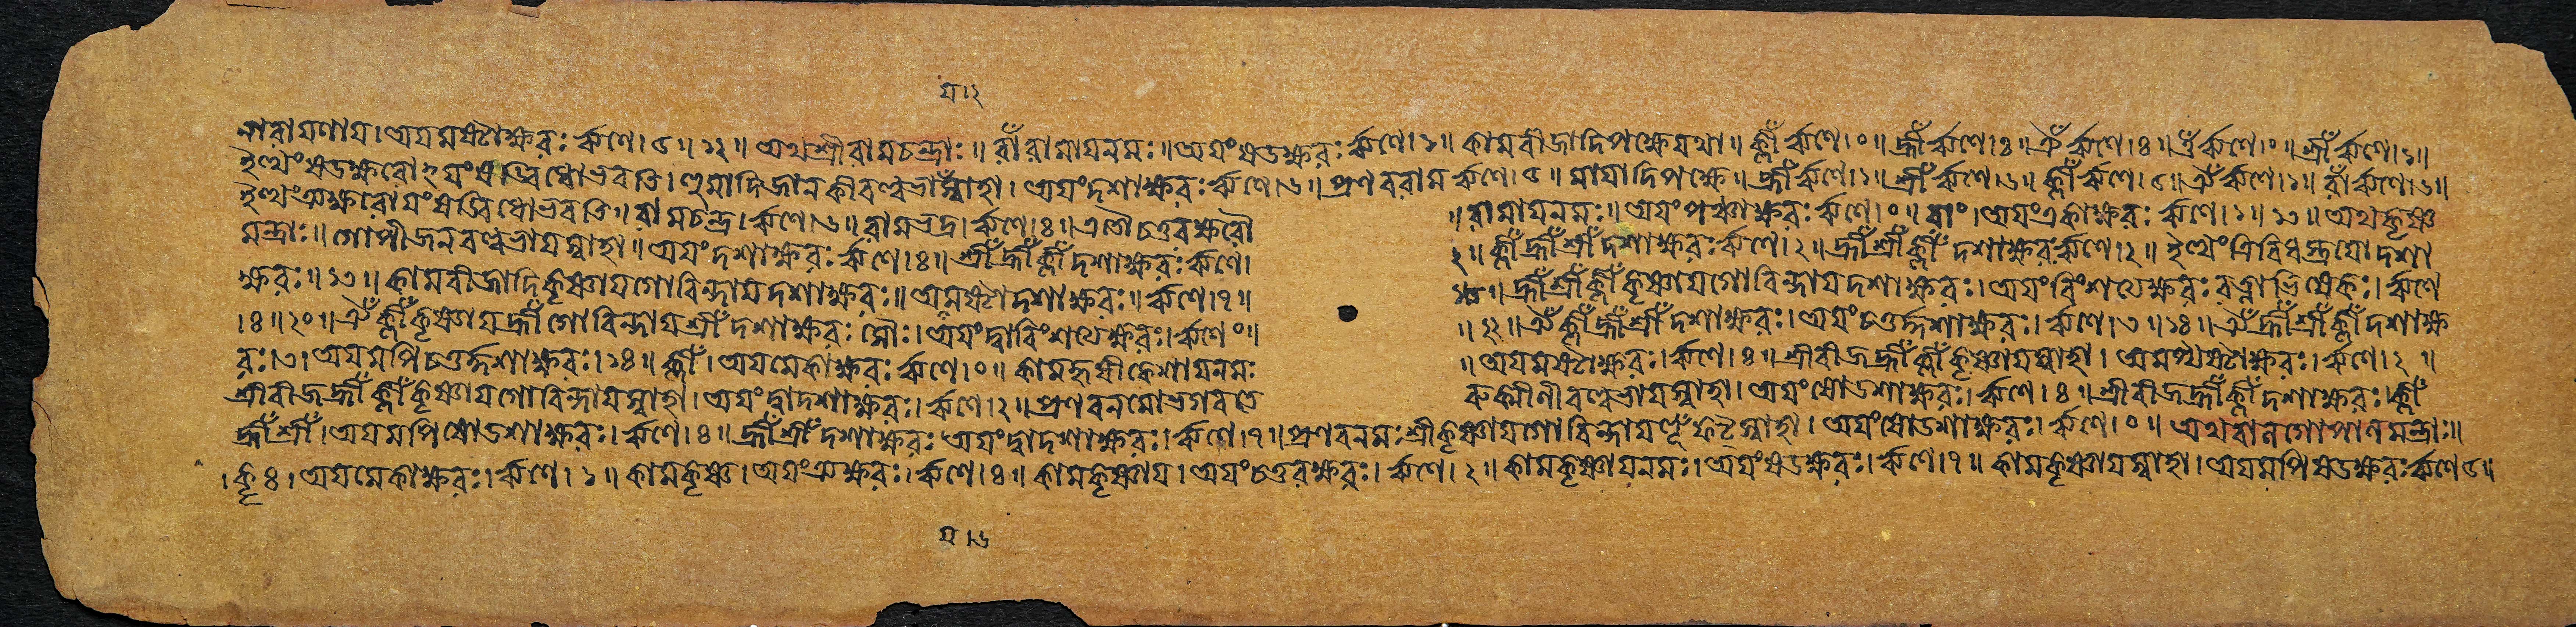 য।২
নারায়ণায়।অয়মষ্টাক্ষরঃ ঋণে।৫॥১২॥ অথশ্রীরামচন্দ্রাঃ॥ রাঁরামায়নমঃ॥অয়ংষডক্ষরঃঋণে।১॥ কামবীজাদিপক্ষেযথা॥ ক্লীঁঋণে।০॥হ্রীঁঋণে।৪॥ঐঁঋণে।৪॥ওঁঋণে।০॥শ্রীঁঋণে।১॥
ইত্থংষডক্ষরোঽয়ংষড্বিধোভবতি। হুমাদিজানকীবল্লভায়স্বাহা। অয়ংদশাক্ষরঃঋণে।৬॥প্রণবরামঋণে।৫॥ মায়াদিপক্ষে॥ হ্রীঁঋণে।১॥শ্রীঁঋণে।৬॥ ক্লীঁঋণে।৫॥ঐঁঋণে।১॥ রাঁঋণে।৬॥
ইত্থংত্র্যক্ষরোয়ংষড্বিধোভবতি॥রামচন্দ্র।ঋণে।৬॥রামভদ্র।ঋণে।৪॥এতৌচতুরক্ষরৌ ॥রামায়নমঃ॥অয়ংপঞ্চাক্ষরঃঋণে।০॥রাং।অয়ংএকাক্ষরঃ ঋণে।১॥১৩॥অথকৃষ্ণ
মন্ত্রাঃ॥ গোপীজনবল্লভায়স্বাহা॥অয়ংদশাক্ষরঃঋণে।৪॥ শ্রীঁহ্রীঁক্লীঁদশাক্ষরঃঋণে। ২॥ক্লীঁহ্রীঁশ্রীঁদশাক্ষরঃঋণে।২॥হ্রীঁশ্রীঁক্লীঁদশাক্ষরঃঋণে।২॥ ইত্থংত্রিবিধস্ত্রয়োদশা
ক্ষরঃ॥১৩॥ কামবীজাদিকৃষ্ণায়গোবিন্দায়দশাক্ষরঃ॥অয়মষ্টাদশাক্ষরঃ॥ঋণে।৭॥ ১৮॥হ্রীঁশ্রীঁক্লীঁকৃষ্ণায়গোবিন্দায়দশাক্ষরঃ।অয়ংবিংশত্যক্ষরঃ ঋণে
।৪॥২০॥ঐঁক্লীঁকৃষ্ণায়হ্রীঁগোবিন্দায়শ্রীঁদশাক্ষরঃ সৌঃ।অয়ংদ্বাবিংশত্যক্ষরঃ।ঋণে০॥ ॥২২॥ঐঁক্লীঁহ্রীঁশ্রীঁদশাক্ষরঃ।অয়ংচতুর্দ্দশাক্ষরঃ।ঋণে।৩॥১৪॥ঐঁহ্রীঁশ্রীঁক্লীঁদশাক্ষ
রঃ।৩।অয়মপিচতুর্দ্দশাক্ষরঃ।১৪॥ক্লীঁ।অয়মেকাক্ষরঃঋণে।০॥কামহৃষীকেশায়নমঃ ॥অয়মষ্টাক্ষরঃ।ঋণে।৪॥শ্রীবীজহ্রীঁক্লীঁকৃষ্ণায়স্বাহা। অয়মপ্যষ্টাক্ষরঃ।ঋণে।২॥
শ্রীবীজহ্রীঁক্লীঁকৃষ্ণায়গোবিন্দায়স্বাহা।অয়ংদ্বাদশাক্ষরঃ।ঋণে।২॥প্রণবনমোভগবতে রুক্মীণীবল্লভায়স্বাহা।অয়ংষোডশাক্ষরঃ।ঋণে।৪॥শ্রীবীজহ্রীঁক্লীঁদশাক্ষরঃ।ক্লীঁ
হ্রীঁশ্রীঁ।অয়মপিষোডশাক্ষরঃ।ঋণে।৪॥হ্রীঁশ্রীঁদশাক্ষরঃ অয়ংদ্বাদশাক্ষরঃ।ঋণে।৭॥প্রণবনমঃশ্রীকৃষ্ণায়গোবিন্দায়হূঁফট্স্বাহা।অয়ংষোডশাক্ষরঃ।ঋণে।০॥ অথবালগোপালমন্ত্রাঃ॥
।কৃঃ।অয়মেকাক্ষরঃ।ঋণে।১॥কামকৃষ্ণ।অয়ংত্র্যক্ষরঃ।ঋণে।৪॥কামকৃষ্ণায়।অয়ংচতুরক্ষরঃ।ঋণে।২॥কামকৃষ্ণায়নমঃ।অয়ংষডক্ষরঃ।ঋণে।৭॥কামকৃষ্ণায়স্বাহা।অয়মপিষডক্ষরঃঋণে৫॥
য।৬